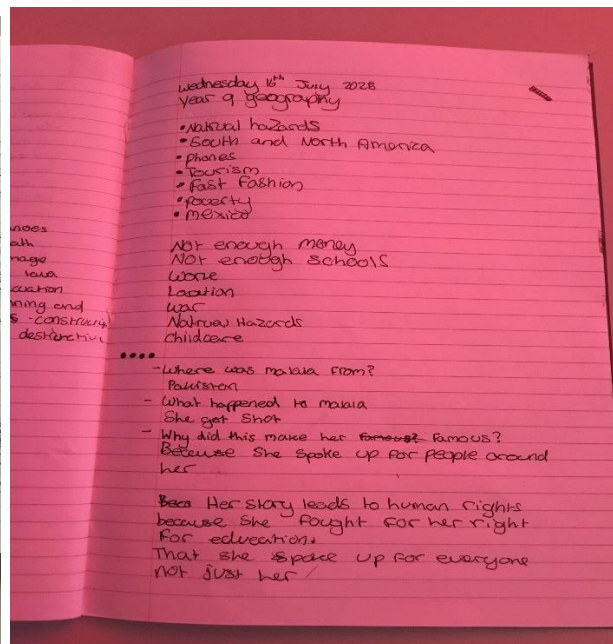 wednesday 16th July 2028
year 9 geography
• Natrual hazards
• South and North America
• phones
• Tourism
• fast fashion
• poverty
• mexico
Not enough money
Not enough schools
Location
war
Natrual Hazards
childcare
- Where was malala from?
Pakistan
- What happened to malala
She got Shot
- Why did this make her famous? Famous?
Because She spoke up for people around
her
Beca Her story leads to human rights
because She fought for her right
for education.
That she spoke up for everyone
not just her
ning and
destructiv